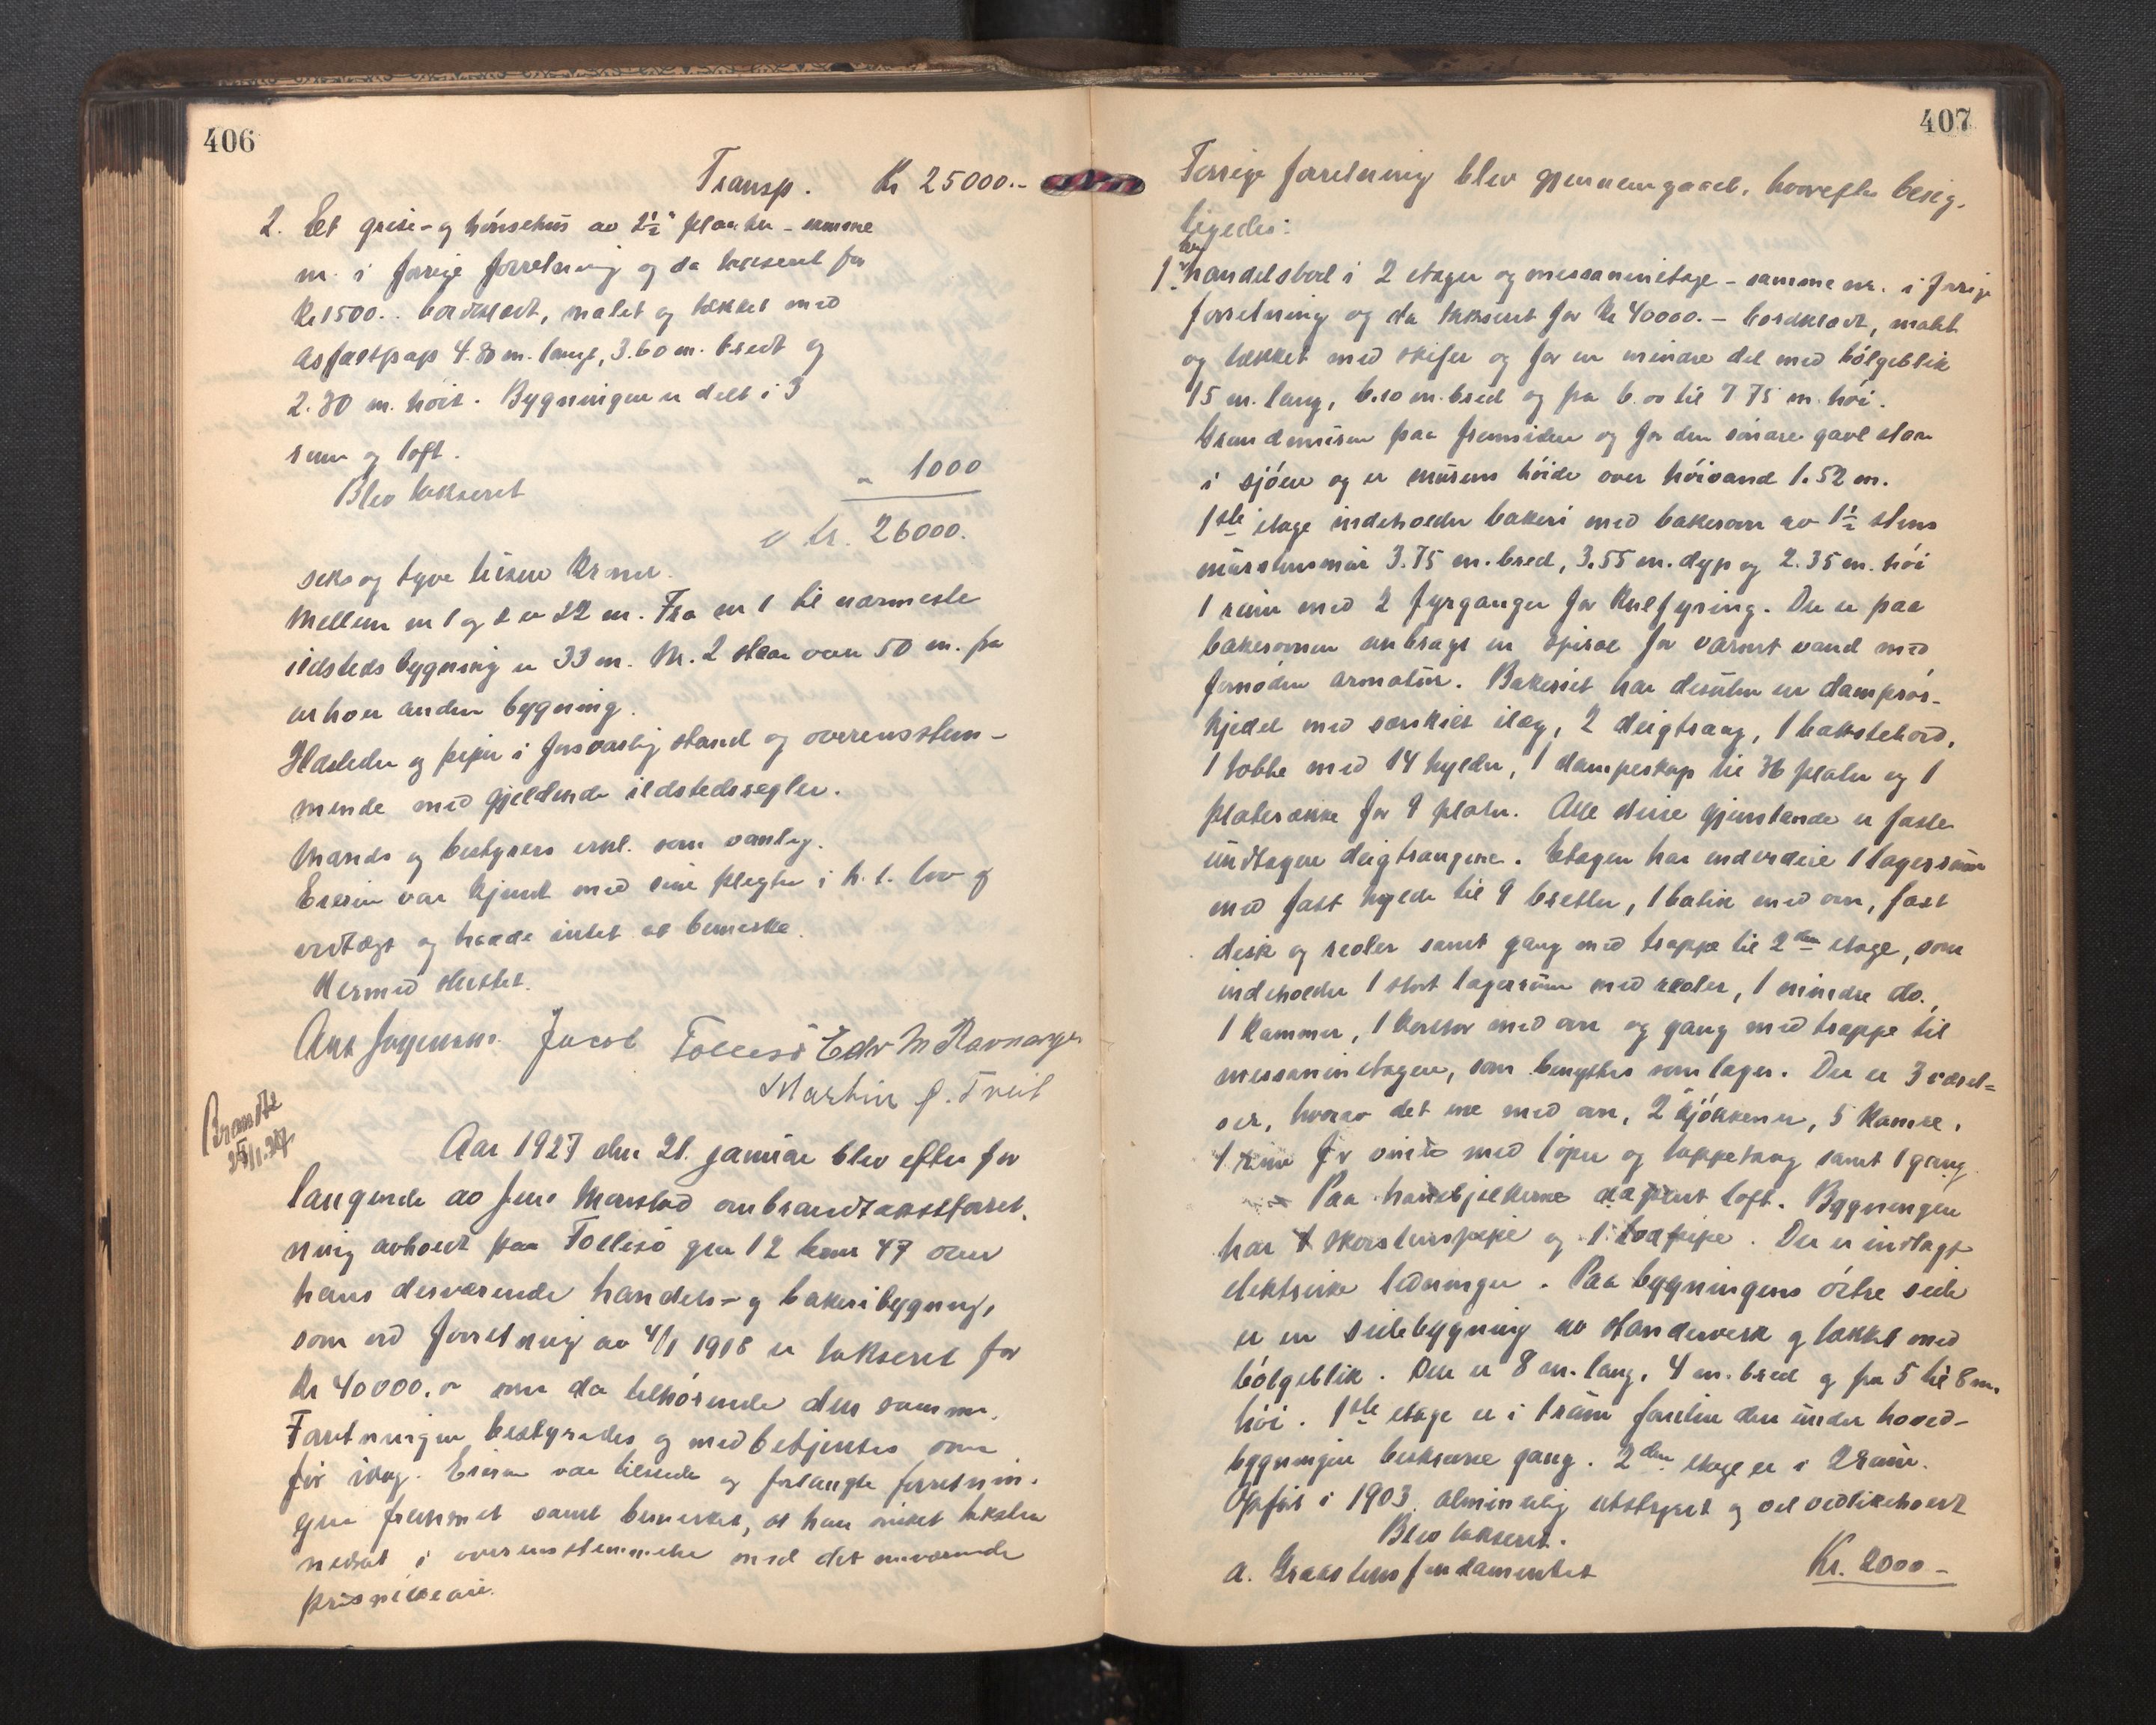 406
Transp. Kr 25000.-
2. Et grise- og hönsehus av 2½" planker - samme
nr. i forrige forretning og da takseret for
Kr 1500.- bordklædt, malet og tækket med
asfaltpap 4.80 m. langt, 3.60 m. bredt og
2.80 m. höit. Bygningen er delt i 3
rum og loft.
Blev takseret " 1000
kr. 26000.
seks og tyve tusen kroner.
Mellem nr 1 og 2 er 22 m. Fra nr 1 til nærmeste
ildstedsbygning er 33 m. Nr. 2 staar over 50 m. fra
enhver anden bygning.
Ildsteder og piper i forsvarlig stand og overensstem-
mende med gjeldende ildstedsregler.
Mænds og bestyrers erkl. som vanlig.
Eieren var kjendt med sine plegter i h. t. lov og
vedtægt og hadde intet at bemerke.
Hermed sluttet.
Jacob Tollesö Edv M Ravnanger
Martin J. Tveit
Brandte
25/1.27
Aar 1927 den 21. januar blev efter for
langende av Jens Marstad en brandtakstforret-
ning avholdt paa Follesö gnr 12 bnr 47 over
hans derværende handels- og bakeribygning,
som ved forretning av 4/1 1918 er takseret for
Kr 40000.- som da tilhörende den samme.
Forretningen bestyredes og medbetjentes som
för idag. Eieren var tilstede og forlangte forretnin-
gen fremmet samt bemerket, at han önsket taksten
nedsat i overensstemmelse med det nuværende
prisniveau.
407
Forrige forretning blev gjennemgaaet, hvorefter besig-
tigedes:
1. En handelsbod i 2 etager og messaninetage - samme nr. i forrige
forretning og da takseret for Kr 40000.- bordklædt, malt
og tækket med skifer og for en mindre del med bölgeblik
15 m. lang, 6.10 m. bred og fra 6.00 til 7.75 m. höi.
Grundmuren paa fremsiden og for den söndre gavl staar
i sjöen og er murens höide over höivand 1.52 m.
1ste etage indeholder bakeri med bakerovn av 1½ stens
murstensmur 3.75 m. bred, 3.55 m. dyp og 2.35 m. höi
1 rum med 2 fyrganger for kulfyring. Der er paa
bakerovnen anbragt en spiral for varmt vand med
fornöden armatur. Bakeriet har desuten en damprör-
kjedel med særskilt ilæg, 2 deigtraug, 1 bakstebord,
1 tobbe med 14 hylder, 1 dampeskap til 36 plater og 1
platerække for 9 plater. Alle disse gjenstande er faste
undtagen deigtraugene. Etagen har endvidere 1 lagerrum
med fast hylde til 9 bretter, 1 butik med ovn, fast
disk og reoler samt gang med trappe til 2den etage, som
indeholder 1 stort lagerrum med reoler, 1 mindre do.,
1 kammer, 1 kontor med ovn og gang med trappe til
messaninetagen, som benyttes som lager. Der er 3 værel-
ser, hvorav det ene med ovn, 2 kjökkener, 5 kamre,
1 rum for med löper og samt 1 gang.
Paa hanebjelkerne aapent loft. Bygningen
har 1 skorstenspipe og 1 . Der er indlagt
elektriske ledninger. Paa bygningens östre side
er en sidebygning av standerverk og tækket med
bölgeblik. Den er 8 m. lang, 4 m. bred og fra 5 til 8 m.
höi. 1ste etage er i 1 rum foruten den under hoved-
bygningen beskrevne gang. 2den etage er i 2 rum.
Opfört i 1903, almindelig utstyret og vel vedlikeholdt
Blev takseret.
a. Graastensfundamentet Kr. 2000 -